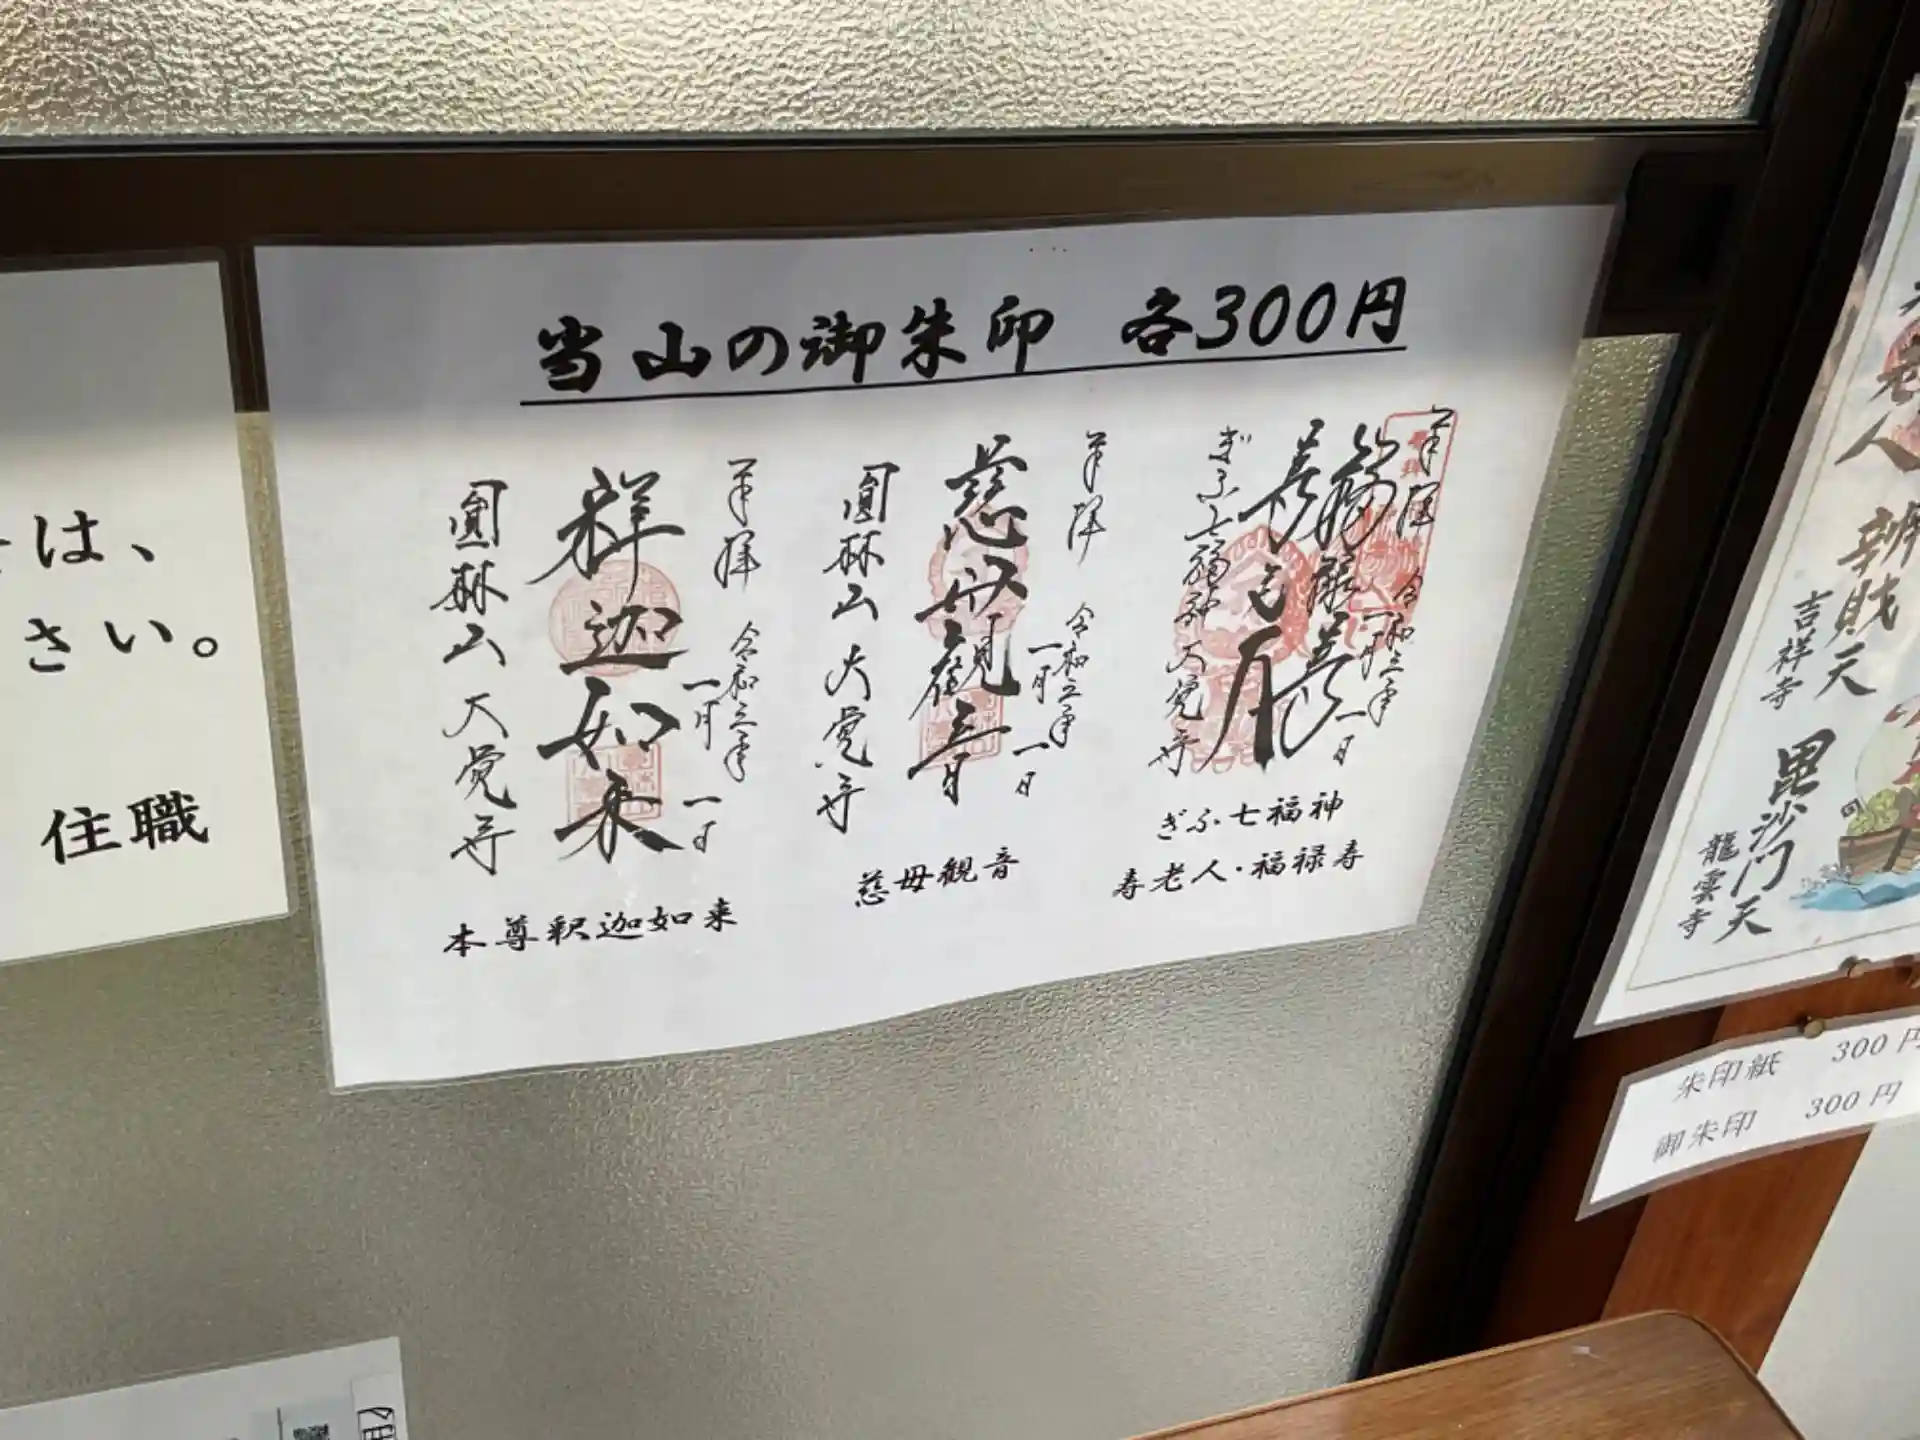 当山の御朱印 各300円
奉拝
令和三年
一月一日
ぎふ七福神 大覚寺
ぎふ七福神
寿老人・福禄寿
奉拝
令和三年
一月一日
慈母観音
圓林山 大覚寺
慈母観音
奉拝
令和三年
一月一日
釈迦如来
圓林山 大覚寺
本尊釈迦如来
は、
さい。
住職
老人
辨財天
吉祥寺
毘沙門天
龍雲寺
朱印紙 300円
御朱印 300円